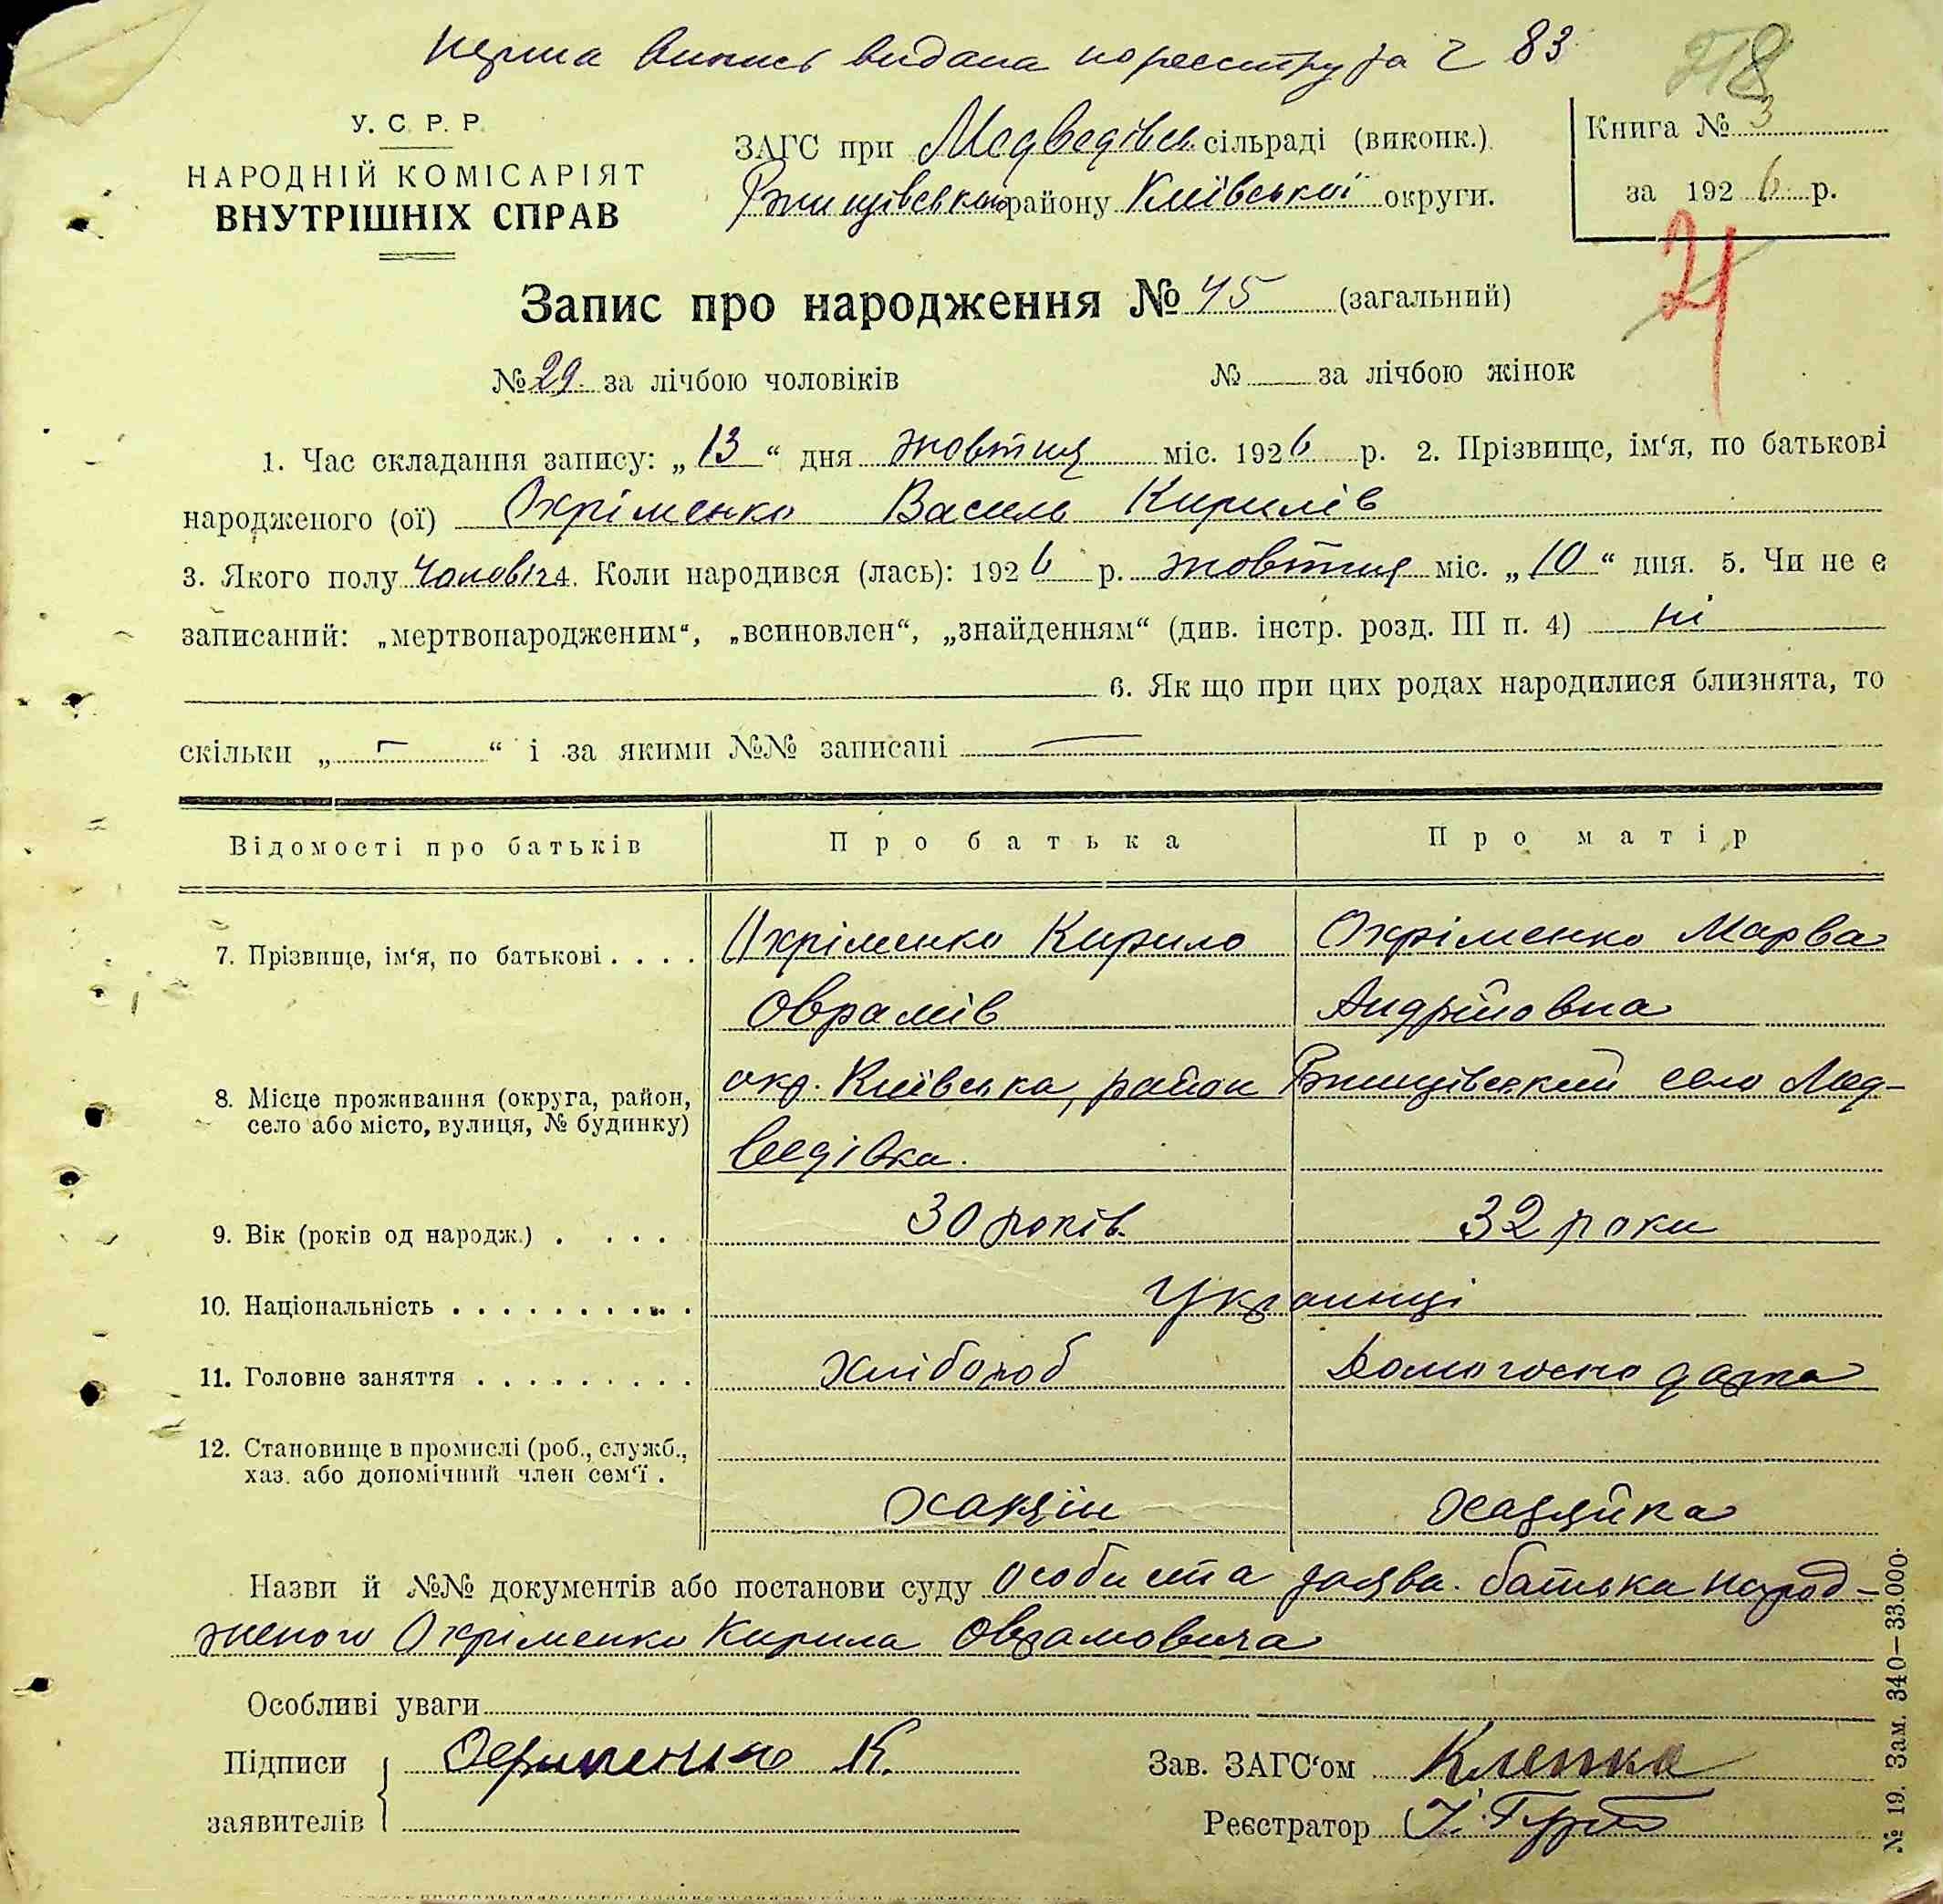 Перша випись видана по реєстру за ч 83
218
У. С. Р. Р.
НАРОДНІЙ КОМІСАРІЯТ
ВНУТРІШНІХ СПРАВ
ЗАГС при Медведівськ. сільраді (виконк.).
Ржищівського району Київської округи.
Книга № 3
за 1926 р.
21
Запис про народження № 45 (загальний)
№ 29. за лічбою чоловіків № за лічбою жінок
1. Час складання запису: „13“ дня жовтня міс. 1926 р. 2. Прізвище, ім‘я, по батькові
народженого (ої) Охріменко Василь Кирилів
3. Якого полу чоловіч 4. Коли народився (лась): 1926 р. жовтня міс. „10“ дня. 5. Чи не є
записаний: „мертвонародженим“, „всиновлен“, „знайденням“ (див. інстр. розд. III п. 4) ні
6. Як що при цих родах народилися близнята, то
скільки „ — “ і за якими №№ записані —
Відомості про батьків Про батька Про матір
7. Прізвище, ім‘я, по батькові . . . . Охріменко Кирило Охріменко Марва
Оврамів Андрійовна
8. Місце проживання (округа, район, село або місто, вулиця, № будинку) окр. Київська, район Ржищівський село Мед-
ведівка.
9. Вік (років од народж.) . . . . . 30 років. 32 роки
10. Національність . . . . . . . . . . Українці
11. Головне заняття . . . . . . . . . Хлібороб Домогосподарка
12. Становище в промислі (роб., служб.,
хаз. або допомічний член сем‘ї .
хазяїн хазяйка
Назви й №№ документів або постанови суду особиста заява батька народ-
женого Охріменко Кирила Оврамовича
Особливі уваги
Підписи заявителів Охріменко К.
Зав. ЗАГС‘ом
Реєстратор
№ 19. Зам. 340—33.000.